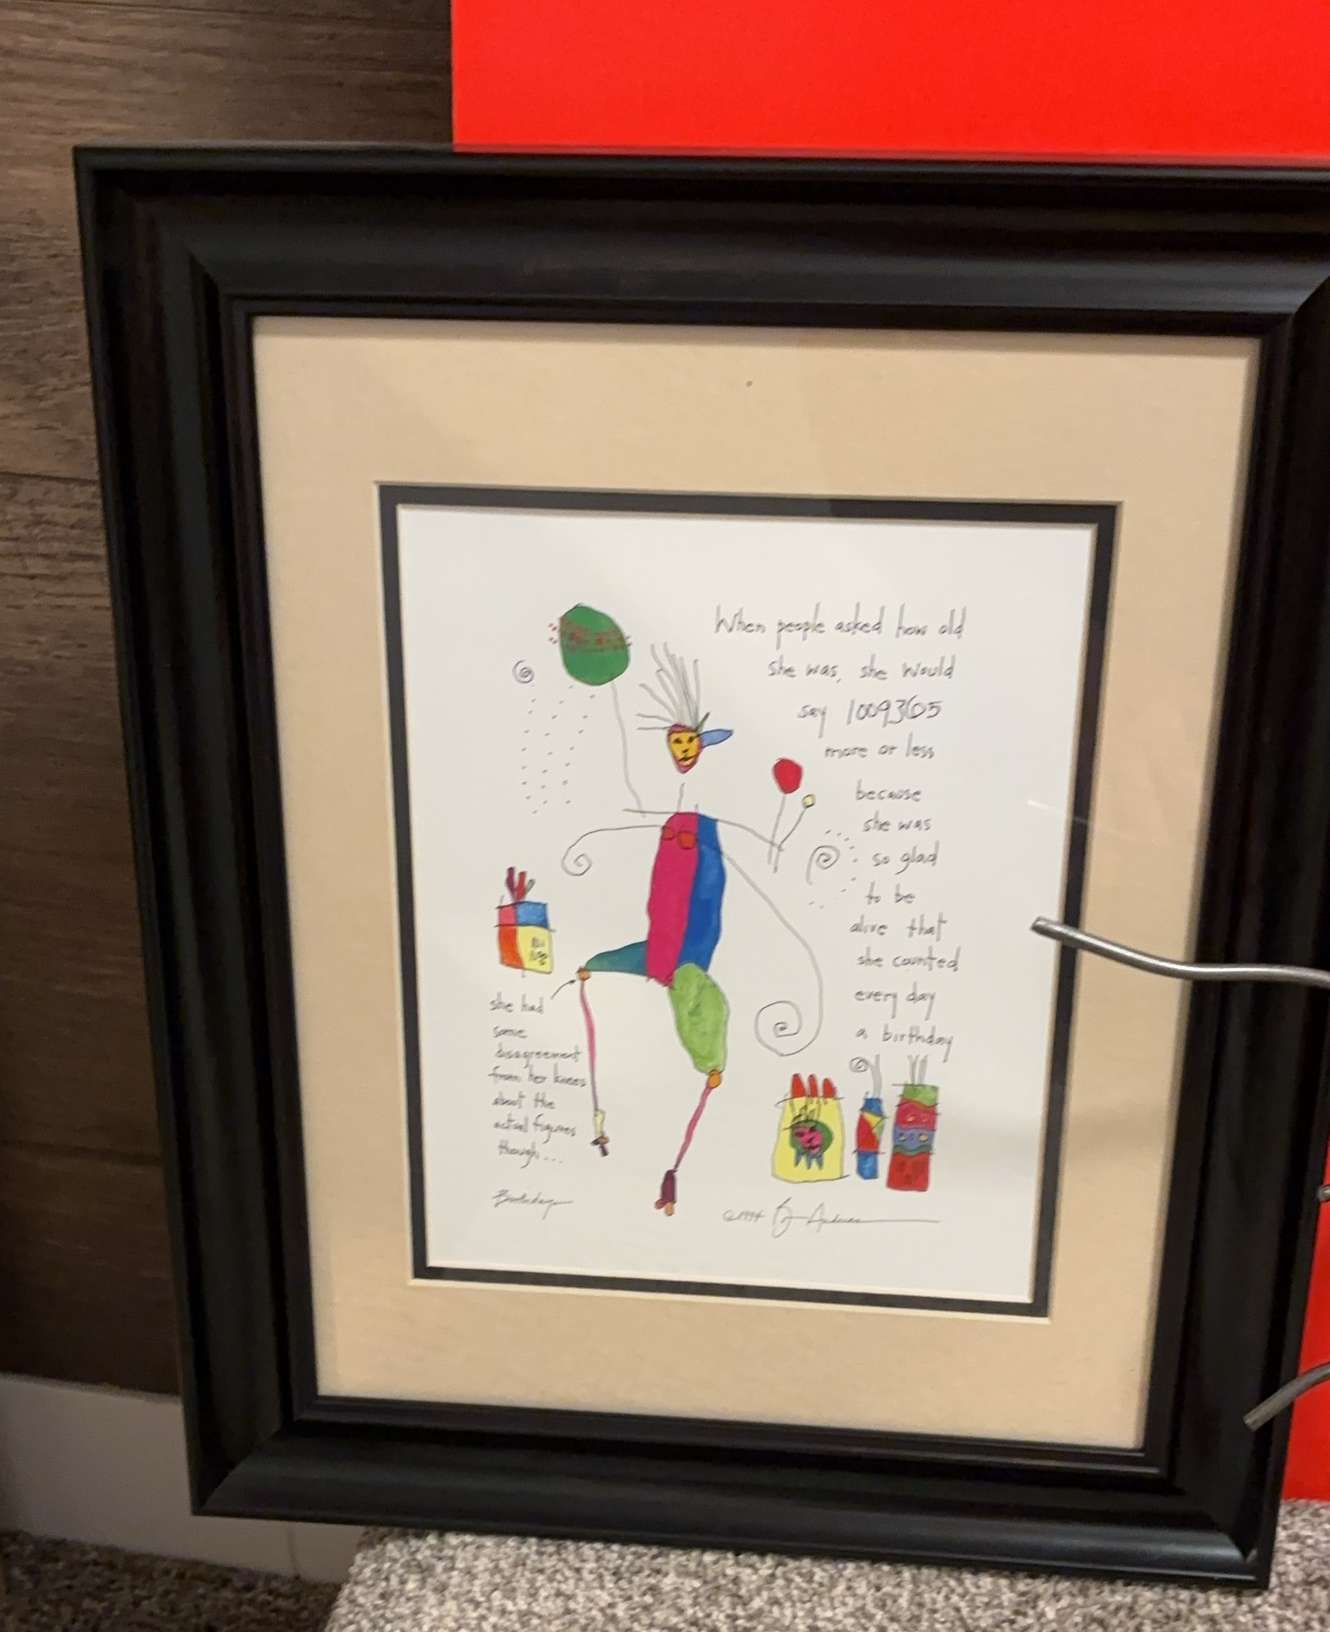 When people asked how old
she was, she would
say 1009365
more or less
because
she was
so glad
to be
alive that
she counted
every day
a birthday
she had
some
disagreement
from her knees
about the
actual figures
though...
Birthday
©1994 Brian Andreas